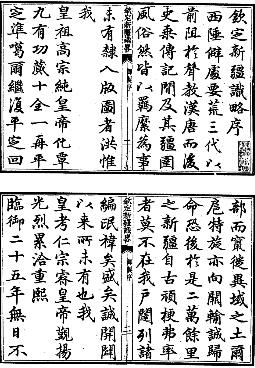 欽定新疆識略序
西陲僻處要荒三代以
前阻於聲教漢唐而後
史乘傳記間及其疆圉
風俗然皆以羈縻為事
欽定新疆識略
御製序
未有隸入版圖者洪惟
我
皇祖高宗純皇帝化覃
九有功蕆十全一再平
定準噶爾繼復平定回
部而竄徙異域之土爾
扈特旋亦向關輸誠歸
命恐後於是二萬餘里
之新疆自古頑梗弗率
者莫不在我戶闥列諸
御製序
編氓矣盛矣誠開闢
以來所未有也我
皇考仁宗睿皇帝覲揚
光烈累洽重熙
臨御二十五年無日不